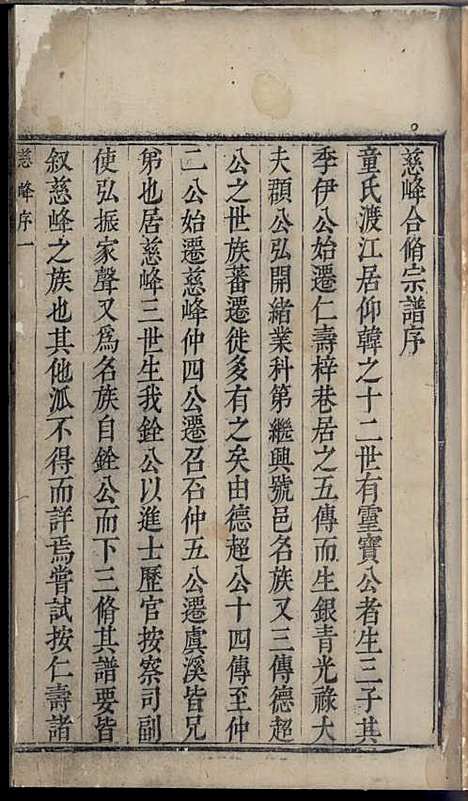 慈峰合脩宗譜序
童氏渡江居仰韓之十二世有靈寶公者生三子其
季伊公始遷仁壽梓巷居之五傳而生銀青光祿大
夫顥公弘開緒業科第繼興號邑名族又三傳德超
公之世族蕃遷徙多有之矣由德超公十四傳至仲
二公始遷慈峰仲四公遷召石仲五公遷虞溪皆兄
弟也居慈峰三世生我銓公以進士歷官按察司副
使弘振家聲又為名族自銓公而下三脩其譜要皆
叙慈峰之族也其他派不得而詳焉嘗試按仁壽諸
慈峰序一